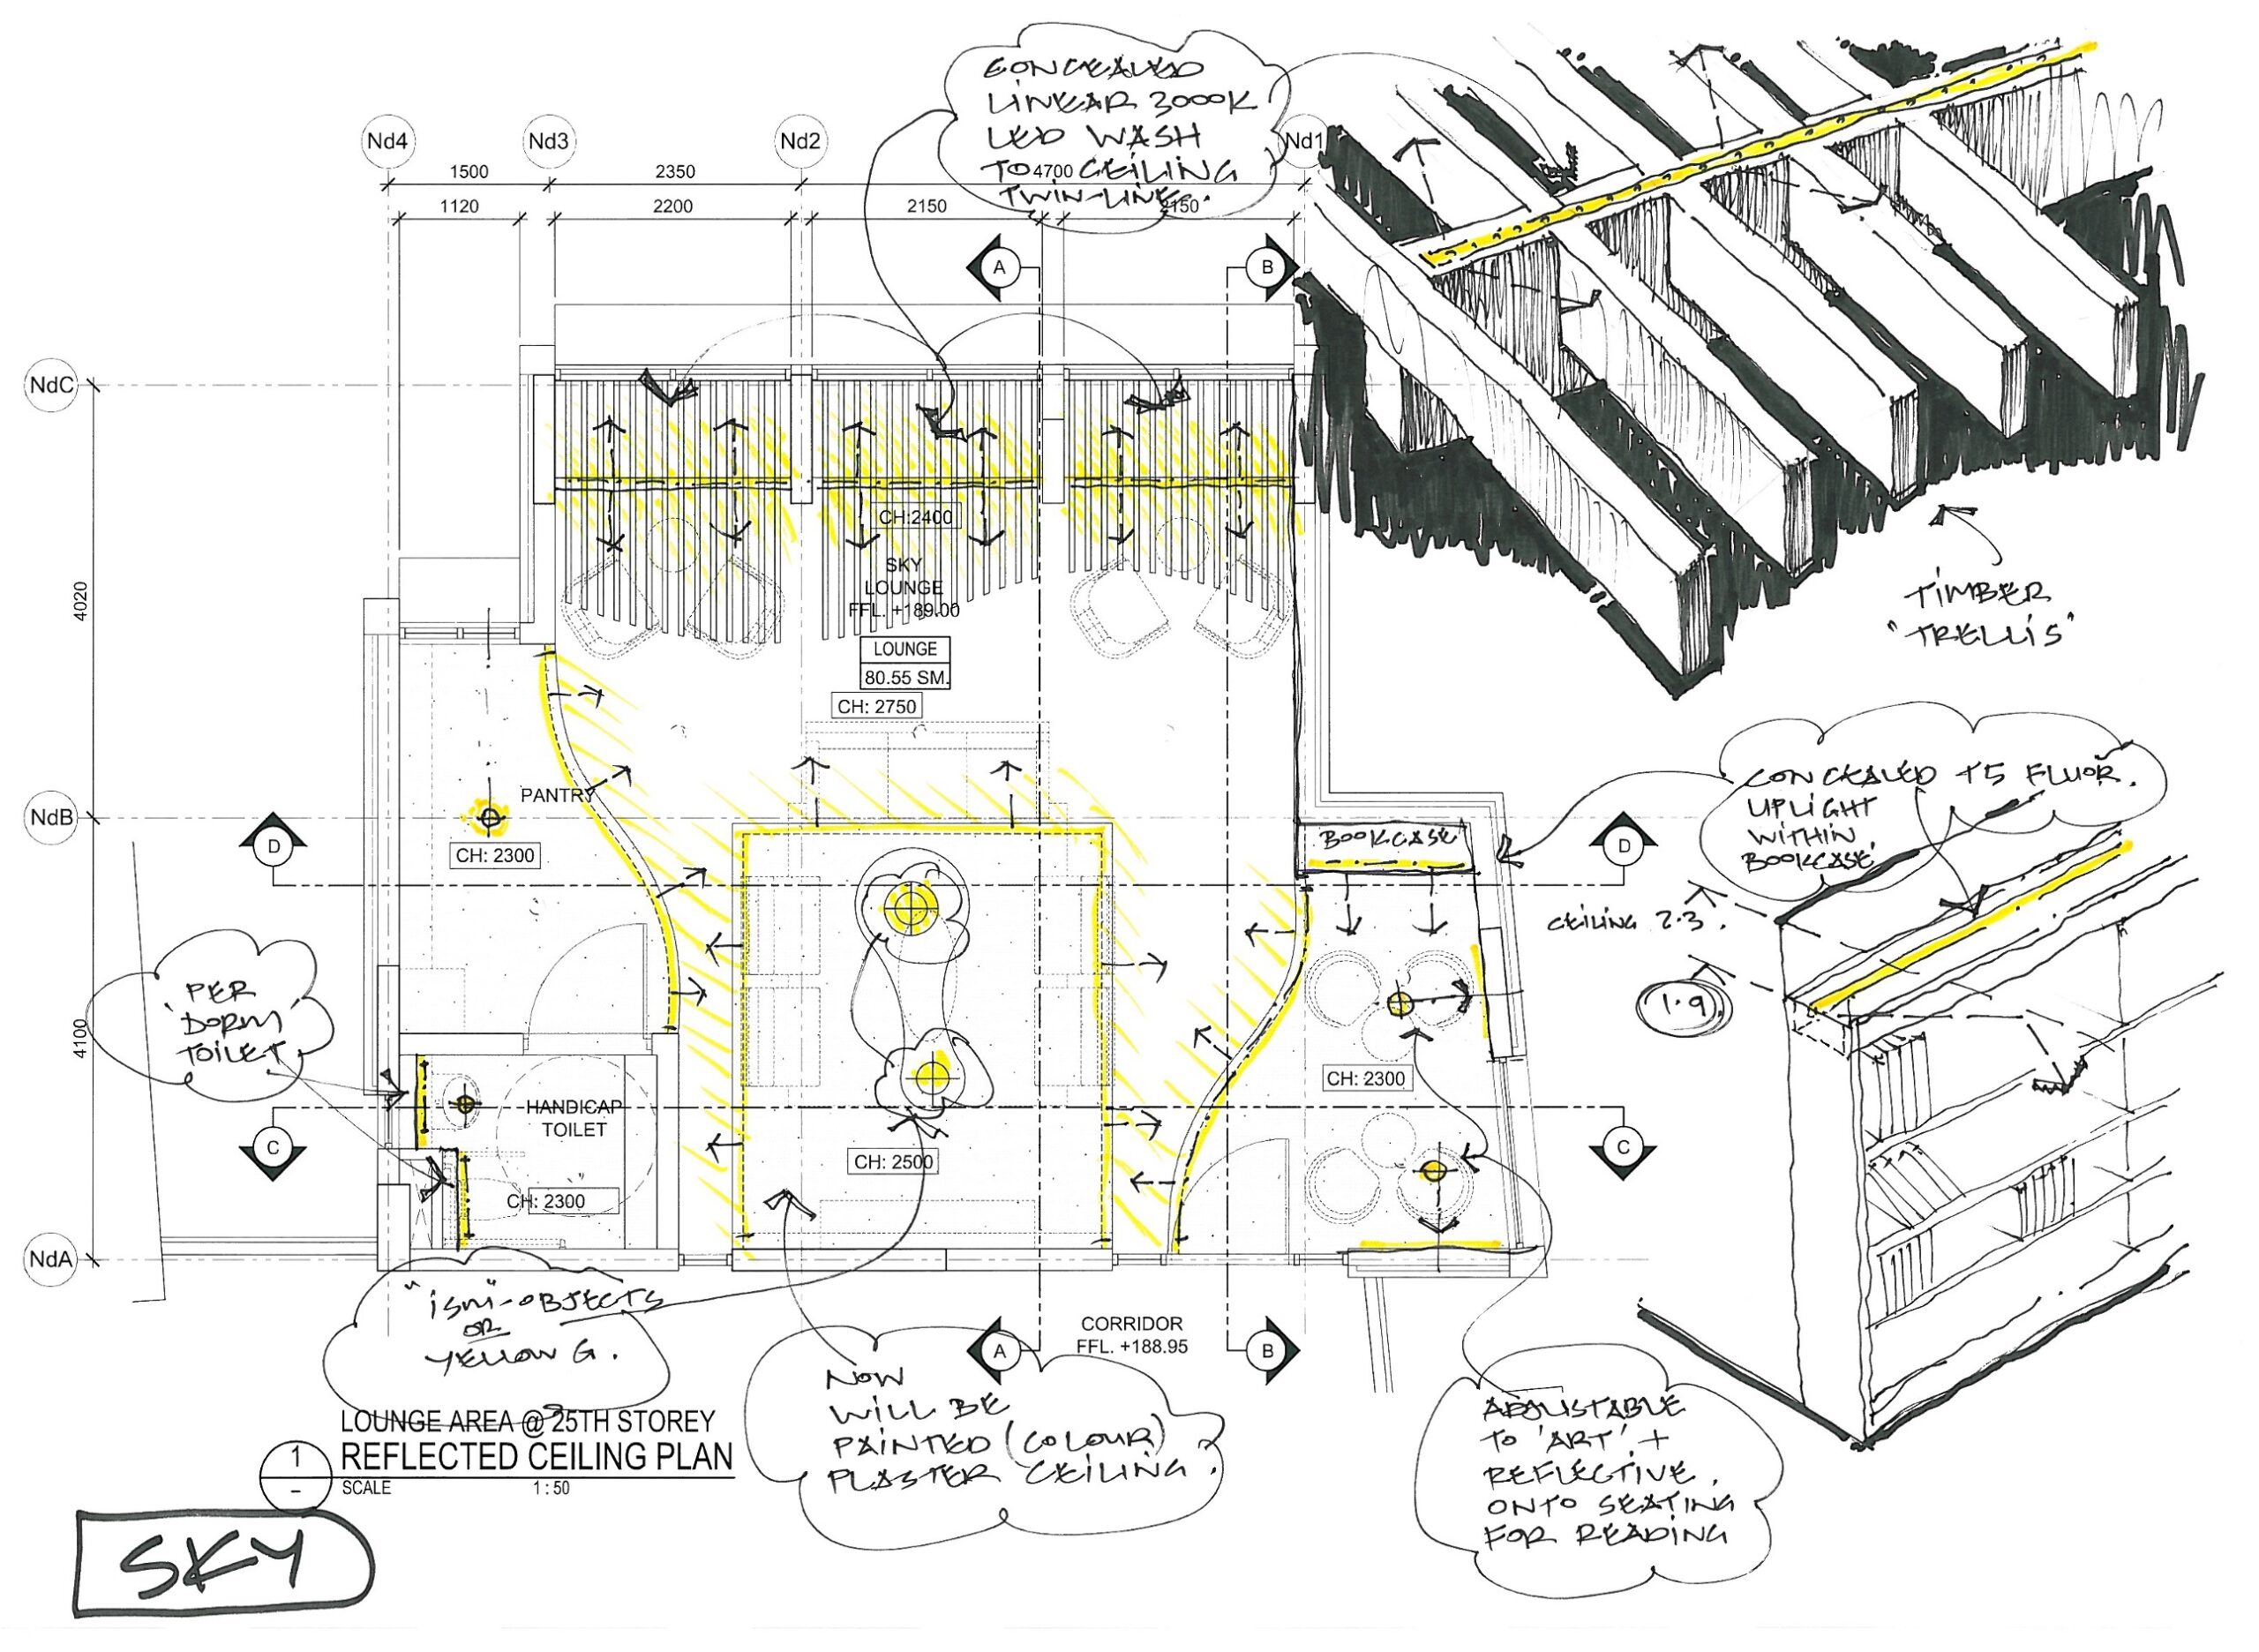 CONCEALED
LINEAR 3000K
LED WASH
TO CEILING
TWIN-LINE.
Nd4
Nd3
Nd2
Nd1
1500
2350
4700
1120
2200
2150
2150
A
B
NdC
NdB
NdA
4020
4100
CH:2400
SKY
LOUNGE
FFL. +189.00
LOUNGE
80.55 SM.
CH: 2750
TIMBER
"TRELLIS"
PANTRY
CH: 2300
D
D
BOOKCASE
CONCEALED T5 FLUOR.
UPLIGHT
WITHIN
BOOKCASE.
CEILING 2.3.
1.9
PER
'DORM'
TOILET
HANDICAP
TOILET
CH: 2300
C
C
CH: 2500
CH: 2300
"ISM"-OBJECTS
OR
YELLOW G.
A
B
CORRIDOR
FFL. +188.95
NOW
WILL BE
PAINTED (COLOUR)
PLASTER CEILING.
ADJUSTABLE
TO 'ART' +
REFLECTIVE.
ONTO SEATING
FOR READING
1
–
LOUNGE AREA @ 25TH STOREY
REFLECTED CEILING PLAN
SCALE 1 : 50
SKY